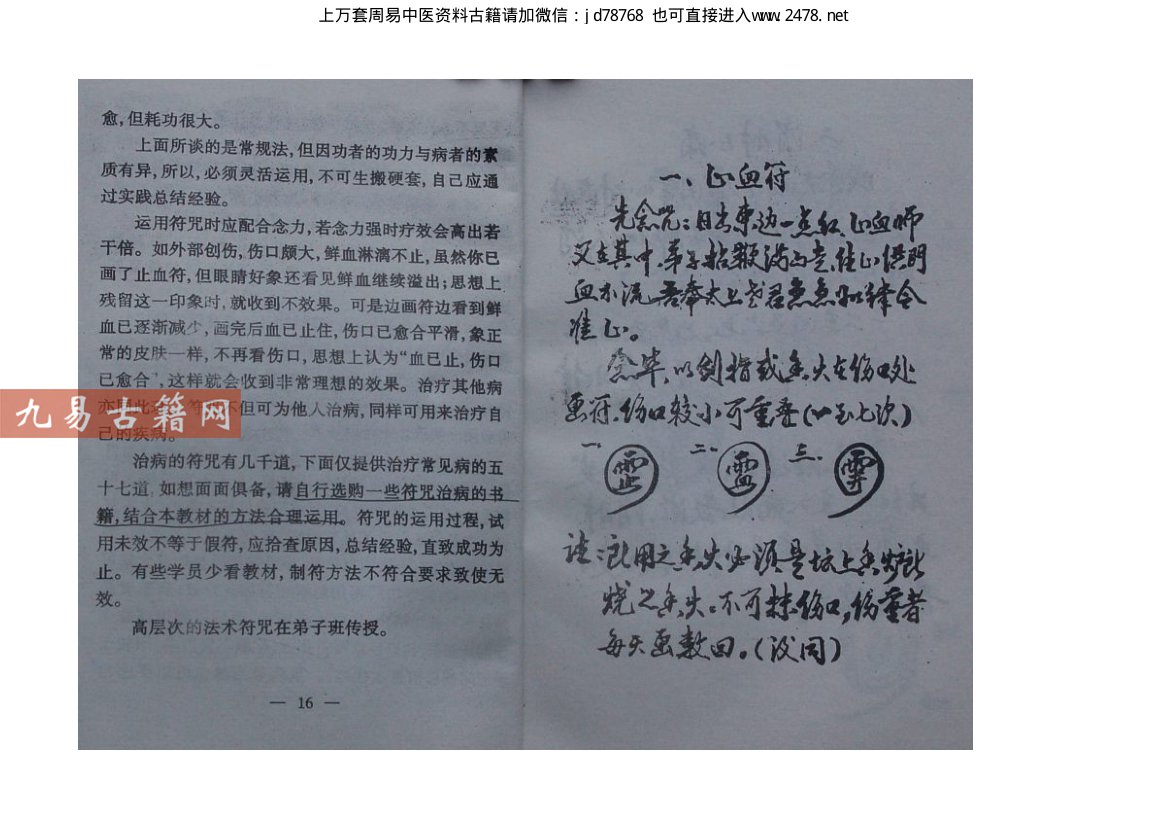 上万套周易中医资料古籍请加微信：jd78768 也可直接进入www.2478.net
愈，但耗功很大。
上面所谈的是常规法，但因功者的功力与病者的素
质有异，所以，必须灵活运用，不可生搬硬套，自己应通
过实践总结经验。
运用符咒时应配合念力，若念力强时疗效会高出若
干倍。如外部创伤，伤口颇大，鲜血淋漓不止，虽然你已
画了止血符，但眼睛好象还看见鲜血继续溢出；思想上
残留这一印象时，就收到不效果。可是边画符边看到鲜
血已逐渐减少，画完后血已止住，伤口已愈合平滑，象正
常的皮肤一样，不再看伤口，思想上认为“血已止，伤口
已愈合”，这样就会收到非常理想的效果。治疗其他病
不但可为他人治病，同样可用来治疗自
己的疾病。
治病的符咒有几千道，下面仅提供治疗常见病的五
十七道，如想面面俱备，请自行选购一些符咒治病的书
籍，结合本教材的方法合理运用。符咒的运用过程，试
用未效不等于假符，应拾查原因，总结经验，直致成功为
止。有些学员少看教材，制符方法不符合要求致使无
效。
高层次的法术符咒在弟子班传授。
— 16 —
九易古籍网
一、止血符
先念咒：日出東边一点红，止血师
父在其中，弟子
血不流，吾奉太上老君急急如律令
准止。
念毕，以剑指或香火在伤口处
画符。伤口较小可重叠（四至七次）
一、 二、 三、
注：所用之香火必须是坛上香炉所
烧之香火。不可抹伤口，伤重者
每天画数回。（下同）